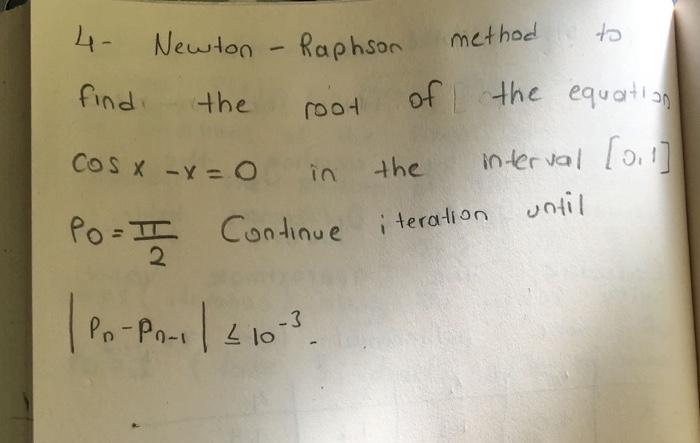 4- Newton - Raphson method to
find the root of the equation
cos x - x = 0 in the interval [0,1]
P0 = π/2 Continue iteration until
|Pn - Pn-1| ≤ 10^-3.